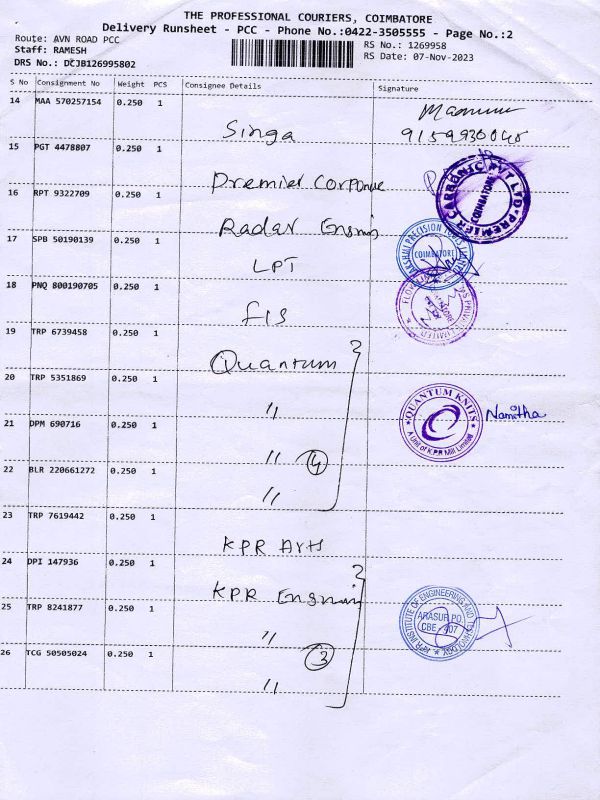 THE PROFESSIONAL COURIERS, COIMBATORE
Delivery Runsheet - PCC - Phone No.:0422-3505555 - Page No.:2
Route: AVN ROAD PCC
RS No.: 1269958
Staff: RAMESH
RS Date: 07-Nov-2023
DRS No.: DCJB126995802
S No Consignment No Weight PCS Consignee Details Signature
14 MAA 570257154 0.250 1
Singa
15 PGT 4478807 0.250 1
Premier Corpone
CARBONIC PVT LTD PREMIER
COIMBATORE
16 RPT 9322709 0.250 1
Radar
17 SPB 50190139 0.250 1
LPT
LAKSHMI PRECISION TOOLS LIMITED
COIMBATORE
18 PNQ 800190705 0.250 1
FIS
PRIVATE LIMITED
19 TRP 6739458 0.250 1
Quantum
20 TRP 5351869 0.250 1
"
QUANTUM KNITS
A Unit of K.P.R Mill Limited
Namitha
21 DPM 690716 0.250 1
" 4
22 BLR 220661272 0.250 1
"
23 TRP 7619442 0.250 1
KPR Arts
24 DPI 147936 0.250 1
KPR
25 TRP 8241877 0.250 1
"
KPR INSTITUTE OF ENGINEERING AND TECHNOLOGY
ARASUR PO.
CBE - 407
26 TCG 50505024 0.250 1
3
"